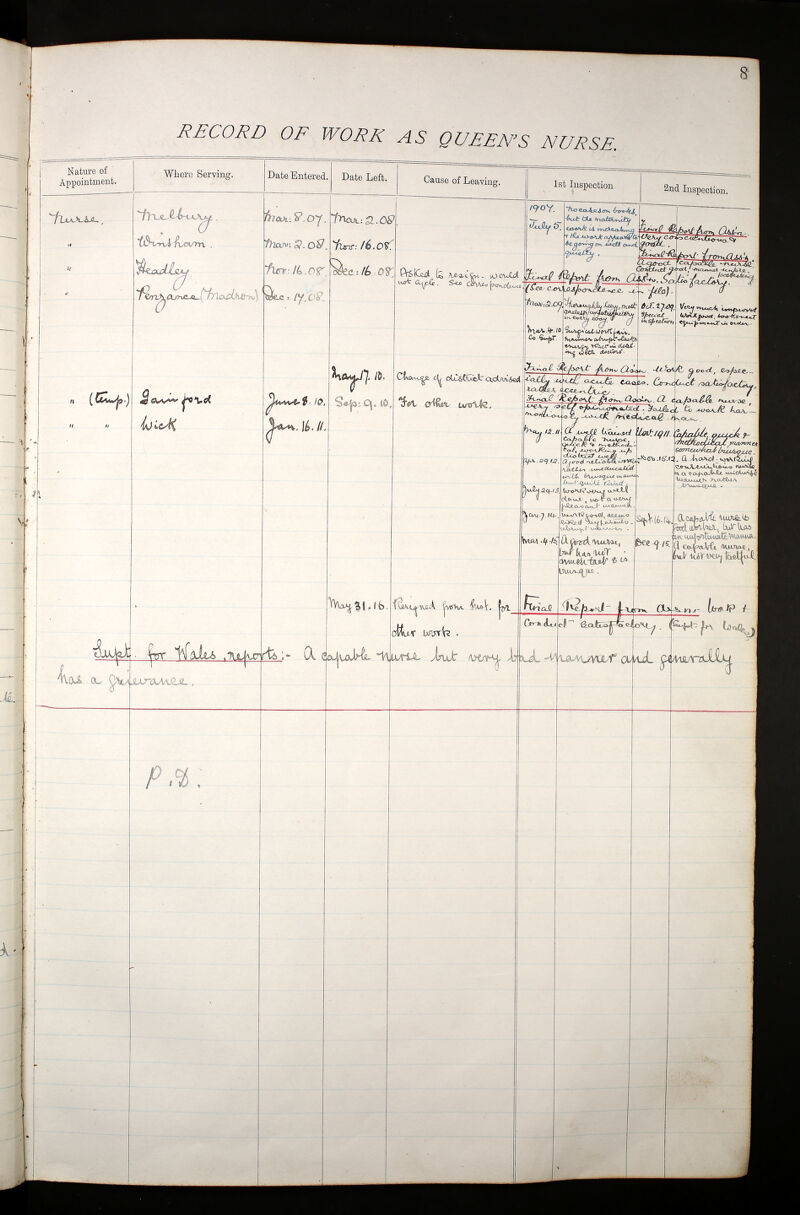 8
RECORD OF WORK AS QUEEN'S NURSE.
Nature of Appointment. Where Serving. Date Entered. Date Left. Cause of Leaving. 1st Inspection 2nd Inspection.
Nurse. Melbury. Mar: 8. 07. Mar: 2. 08
1907. July 5. No cases on books, but the maternity work is increasing & the work appears to be going on well and quietly.
Final Report from Ass'n. Very conscientious & good.
" Winsham. Mar: 2. 08. Nov: 16. 08.
Final Report from Ass'n. A good capable nurse. Conduct good
" Headley Nov: 16. 08 Dec: 16. 08. Asked to resign. would not cycle. See correspondence
Final Report from Ass'n. Satisfactory.
(See correspondence in file)
" Penzance (Madron) Dec: 17. 08. May 17. 10. Change of district advised
Mar: 2. 09. Thoroughly lazy, most in every way.
Oct. 27. 09. Special inspection Very much improved work good, books neat equipment in order.
Mar. 4. 10 Co. Supt. Surgical work fair, manner abrupt lacks energy & tact in dealing with doctors.
Final Report from Assn. Work good, especially with acute cases. Conduct satisfactory, rather eccentric.
" (temp.) Sampford June 8. 10. Sep: 9. 10. For other work.
Final Report from Assn. A capable nurse, very self opinionated. Failed to work harmoniously with medical man.
" " Wick Jan. 16. 11. May 31. 16. Resigned from Inst. for other work.
May 12. 11. A well trained capable nurse, quick & methodical, working up district well
Nov. 1911. Capable, quick & methodical, manner somewhat brusque.
Apr. 29 12. A good reliable worker rather uneducated with brusque manner but quite kind.
Nov. 15. 12. A hard-working conscientious nurse is a capable midwife manner rather brusque.
July 29. 13. Work very well done, not a very pleasant manner.
Jan. 7. 14. Work good, seems liked by patients - abrupt manner.
Sept. 16. 14. A capable nurse & good worker, but has an unfortunate manner.
Mar. 4. 15 A good nurse, but has not much tact & is brusque.
Dec. 9. 15. A capable nurse, but not very tactful
Final Report from Assn. - Work & Conduct satisfactory. (Supt. for Wales)
Supt. for Wales reports:- A capable nurse but very bad manner and generally
has a grievance.
P. D.